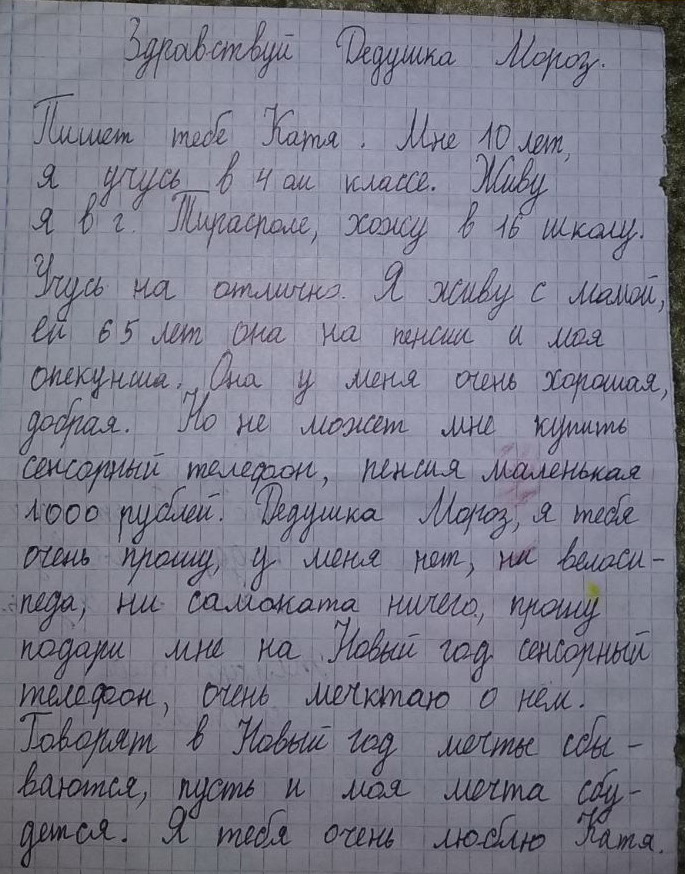 Здравствуй Дедушка Мороз.
Пишет тебе Катя. Мне 10 лет,
я учусь в 4 ом классе. Живу
я в г. Тирасполе, хожу в 16 школу.
Учусь на отлично. Я живу с мамой,
ей 65 лет она на пенсии и моя
опекунша. Она у меня очень хорошая,
добрая. Но не может мне купить
сенсорный телефон, пенсия маленькая
1000 рублей. Дедушка Мороз, я тебя
очень прошу, у меня нет, ни велоси-
педа, ни самоката ничего, прошу
подари мне на Новый год сенсорный
телефон, очень мечктаю о нём.
Говорят в Новый год мечты сбы-
ваются, пусть и моя мечта сбу-
дется. Я тебя очень люблю Катя.